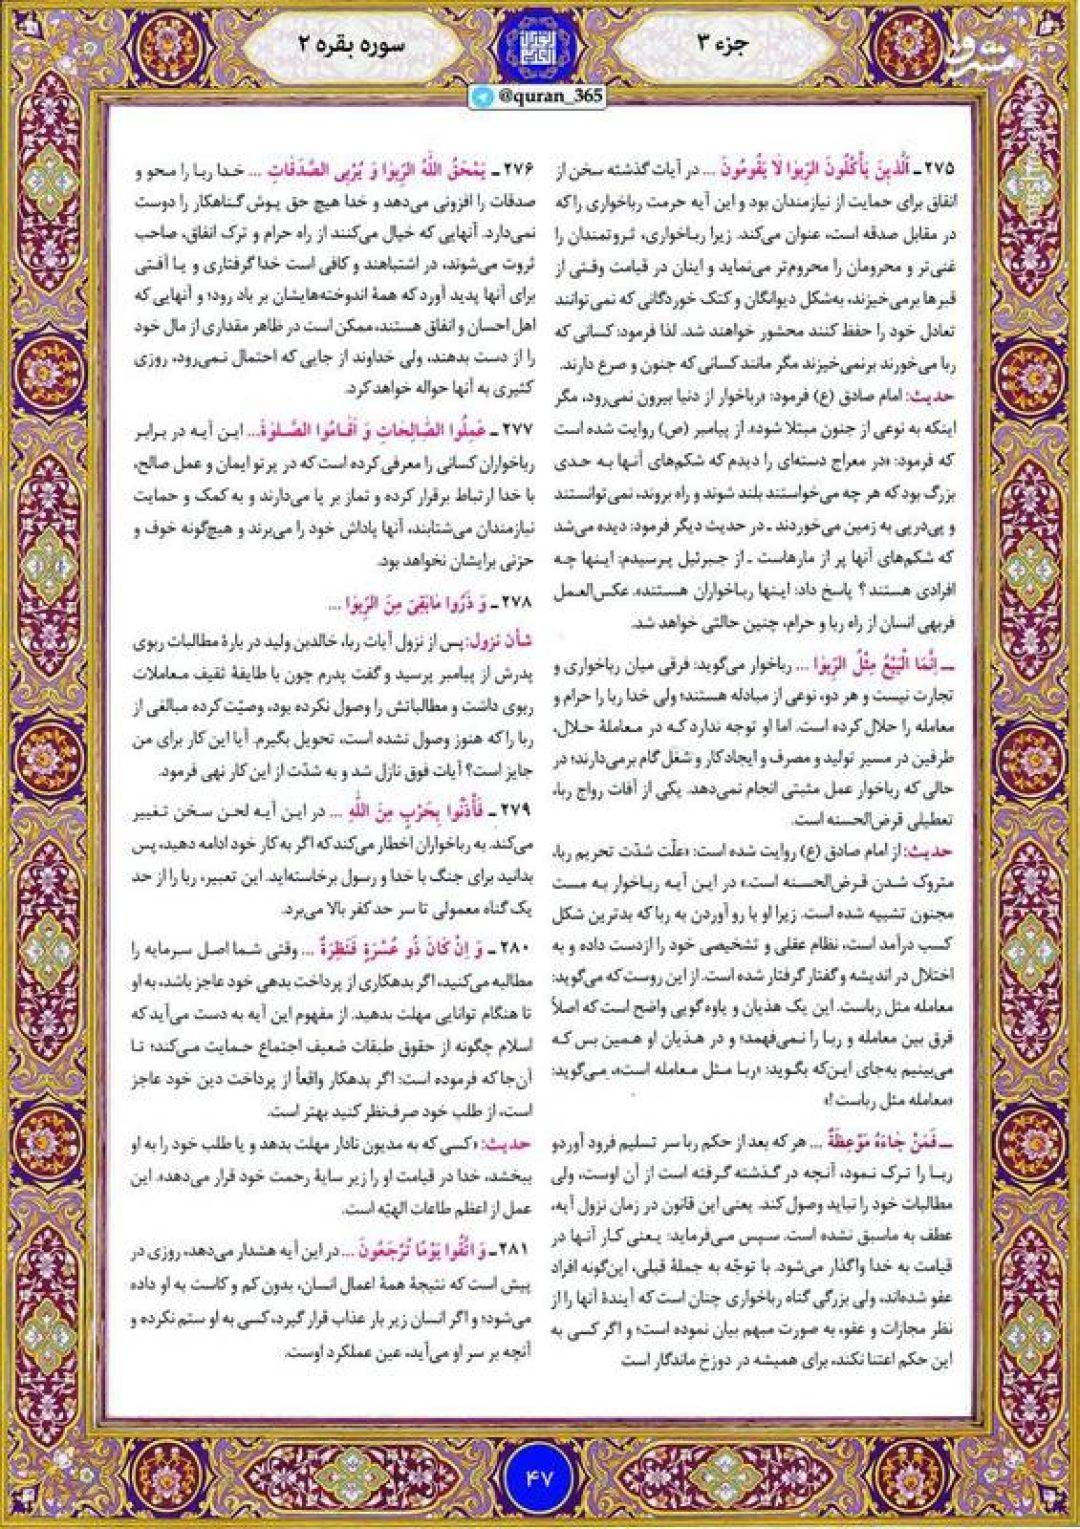 جزء ۳
سوره بقره ۲
@quran_365
مشرق
۲۷۵ـ اَلَّذینَ یَأْکُلُونَ الرِّبوٰا لاٰ یَقُومُونَ ... در آیات گذشته سخن از
انفاق برای حمایت از نیازمندان بود و این آیه حرمت رباخواری را که
در مقابل صدقه است، عنوان می‌کند. زیرا رباخواری، ثروتمندان را
غنی‌تر و محرومان را محروم‌تر می‌نماید و اینان در قیامت وقتی از
قبرها برمی‌خیزند، به‌شکل دیوانگان و کتک خوردگانی که نمی‌توانند
تعادل خود را حفظ کنند محشور خواهند شد. لذا فرمود: کسانی که
ربا می‌خورند برنمی‌خیزند مگر مانند کسانی که جنون و صرع دارند.
حدیث: امام صادق (ع) فرمود: «رباخوار از دنیا بیرون نمی‌رود، مگر
اینکه به نوعی از جنون مبتلا شود». از پیامبر (ص) روایت شده است
که فرمود: «در معراج دسته‌ای را دیدم که شکم‌های آنها به حدی
بزرگ بود که هر چه می‌خواستند بلند شوند و راه بروند، نمی‌توانستند
و پی‌درپی به زمین می‌خوردند ـ در حدیث دیگر فرمود: دیده می‌شد
که شکم‌های آنها پر از مارهاست ـ از جبرئیل پرسیدم: اینها چه
افرادی هستند؟ پاسخ داد: اینها رباخواران هستند». عکس‌العمل
فربهی انسان از راه ربا و حرام، چنین حالتی خواهد شد.
ـ اِنَّمَا الْبَیْعُ مِثْلُ الرِّبوٰا ... رباخوار می‌گوید: فرقی میان رباخواری و
تجارت نیست و هر دو، نوعی از مبادله هستند؛ ولی خدا ربا را حرام و
معامله را حلال کرده است. اما او توجه ندارد که در معاملهٔ حلال،
طرفین در مسیر تولید و مصرف و ایجاد کار و شغل گام برمی‌دارند؛ در
حالی که رباخوار عمل مثبتی انجام نمی‌دهد. یکی از آفات رواج ربا،
تعطیلی قرض‌الحسنه است.
حدیث: از امام صادق (ع) روایت شده است: «علّت شدّت تحریم ربا،
متروک شدن قرض‌الحسنه است.» در این آیه رباخوار به مست
مجنون تشبیه شده است. زیرا او با رو آوردن به ربا که بدترین شکل
کسب درآمد است، نظام عقلی و تشخیصی خود را ازدست داده و به
اختلال در اندیشه و گفتار گرفتار شده است. از این روست که می‌گوید:
معامله مثل رباست. این یک هذیان و یاوه گویی واضح است که اصلاً
فرق بین معامله و ربا را نمی‌فهمد؛ و در هذیان او همین بس که
می‌بینیم به‌جای این‌که بگوید: «ربا مثل معامله است»، می‌گوید:
«معامله مثل رباست!»
ـ فَمَنْ جٰاءَهُ مَوْعِظَةٌ ... هر که بعد از حکم ربا سر تسلیم فرود آورد و
ربا را ترک نمود، آنچه در گذشته گرفته است از آن اوست، ولی
مطالبات خود را نباید وصول کند. یعنی این قانون در زمان نزول آیه،
عطف به ماسبق نشده است. سپس می‌فرماید: یعنی کار آنها در
قیامت به خدا واگذار می‌شود. با توجّه به جملهٔ قبلی، این‌گونه افراد
عفو شده‌اند، ولی بزرگی گناه رباخواری چنان است که آیندهٔ آنها را از
نظر مجازات و عفو، به صورت مبهم بیان نموده است؛ و اگر کسی به
این حکم اعتنا نکند، برای همیشه در دوزخ ماندگار است
۲۷۶ـ یَمْحَقُ اللّٰهُ الرِّبوٰا وَ یُرْبِی الصَّدَقٰاتِ ... خدا ربا را محو و
صدقات را افزونی می‌دهد و خدا هیچ حق پوش گناهکار را دوست
نمی‌دارد. آنهایی که خیال می‌کنند از راه حرام و ترک انفاق، صاحب
ثروت می‌شوند، در اشتباهند و کافی است خدا گرفتاری و یا آفتی
برای آنها پدید آورد که همهٔ اندوخته‌هایشان بر باد رود؛ و آنهایی که
اهل احسان و انفاق هستند، ممکن است در ظاهر مقداری از مال خود
را از دست بدهند، ولی خداوند از جایی که احتمال نمی‌رود، روزی
کثیری به آنها حواله خواهد کرد.
۲۷۷ـ عَمِلُوا الصّٰالِحٰاتِ وَ اَقٰامُوا الصَّلوٰةَ... این آیه در برابر
رباخواران کسانی را معرفی کرده است که در پرتو ایمان و عمل صالح،
با خدا ارتباط برقرار کرده و نماز بر پا می‌دارند و به کمک و حمایت
نیازمندان می‌شتابند، آنها پاداش خود را می‌برند و هیچ‌گونه خوف و
حزنی برایشان نخواهد بود.
۲۷۸ـ وَ ذَرُوا مٰابَقِیَ مِنَ الرِّبوٰا ...
شأن نزول: پس از نزول آیات ربا، خالدبن ولید در بارهٔ مطالبات ربوی
پدرش از پیامبر پرسید و گفت پدرم چون با طایفهٔ ثقیف معاملات
ربوی داشت و مطالباتش را وصول نکرده بود، وصیّت کرده مبالغی از
ربا را که هنوز وصول نشده است، تحویل بگیرم. آیا این کار برای من
جایز است؟ آیات فوق نازل شد و به شدّت از این کار نهی فرمود.
۲۷۹ـ فَأْذَنُوا بِحَرْبٍ مِنَ اللّٰهِ ... در این آیه لحن سخن تغییر
می‌کند. به رباخواران اخطار می‌کند که اگر به کار خود ادامه دهید، پس
بدانید برای جنگ با خدا و رسول برخاسته‌اید. این تعبیر، ربا را از حد
یک گناه معمولی تا سر حد کفر بالا می‌برد.
۲۸۰ـ وَ اِنْ کٰانَ ذُو عُسْرَةٍ فَنَظِرَةٌ ... وقتی شما اصل سرمایه را
مطالبه می‌کنید، اگر بدهکاری از پرداخت بدهی خود عاجز باشد، به او
تا هنگام توانایی مهلت بدهید. از مفهوم این آیه به دست می‌آید که
اسلام چگونه از حقوق طبقات ضعیف اجتماع حمایت می‌کند؛ تا
آن‌جا که فرموده است: اگر بدهکار واقعاً از پرداخت دین خود عاجز
است، از طلب خود صرف‌نظر کنید بهتر است.
حدیث: «کسی که به مدیون نادار مهلت بدهد و یا طلب خود را به او
ببخشد، خدا در قیامت او را زیر سایهٔ رحمت خود قرار می‌دهد». این
عمل از اعظم طاعات الهیّه است.
۲۸۱ـ وَ اتَّقُوا یَوْمًا تُرْجَعُونَ ... در این آیه هشدار می‌دهد، روزی در
پیش است که نتیجهٔ همهٔ اعمال انسان، بدون کم و کاست به او داده
می‌شود؛ و اگر انسان زیر بار عذاب قرار گیرد، کسی به او ستم نکرده و
آنچه بر سر او می‌آید، عین عملکرد اوست.
۴۷